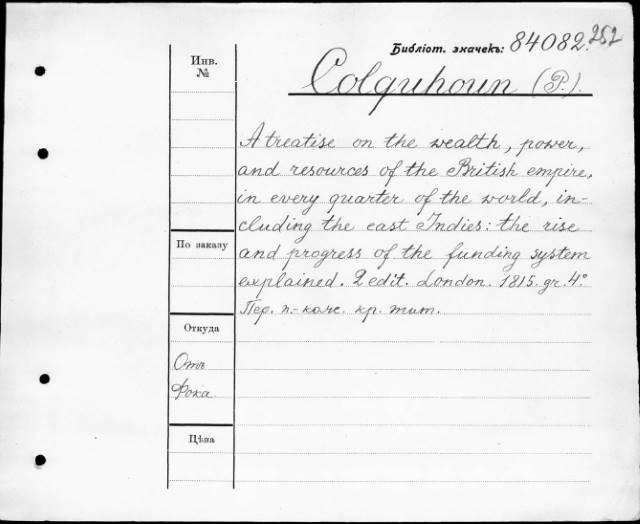 Библіот. значекъ: 84082. 252
Инв.
№
Colquhoun (P.).
A treatise on the wealth, power,
and resources of the British empire,
in every quarter of the world, in-
cluding the east Indies: the rise
and progress of the funding system
explained. 2 edit. London. 1815. gr. 4°
Пер. п.-кож. кр. тит.
По заказу
Откуда
Отъ
Фока.
Цѣна